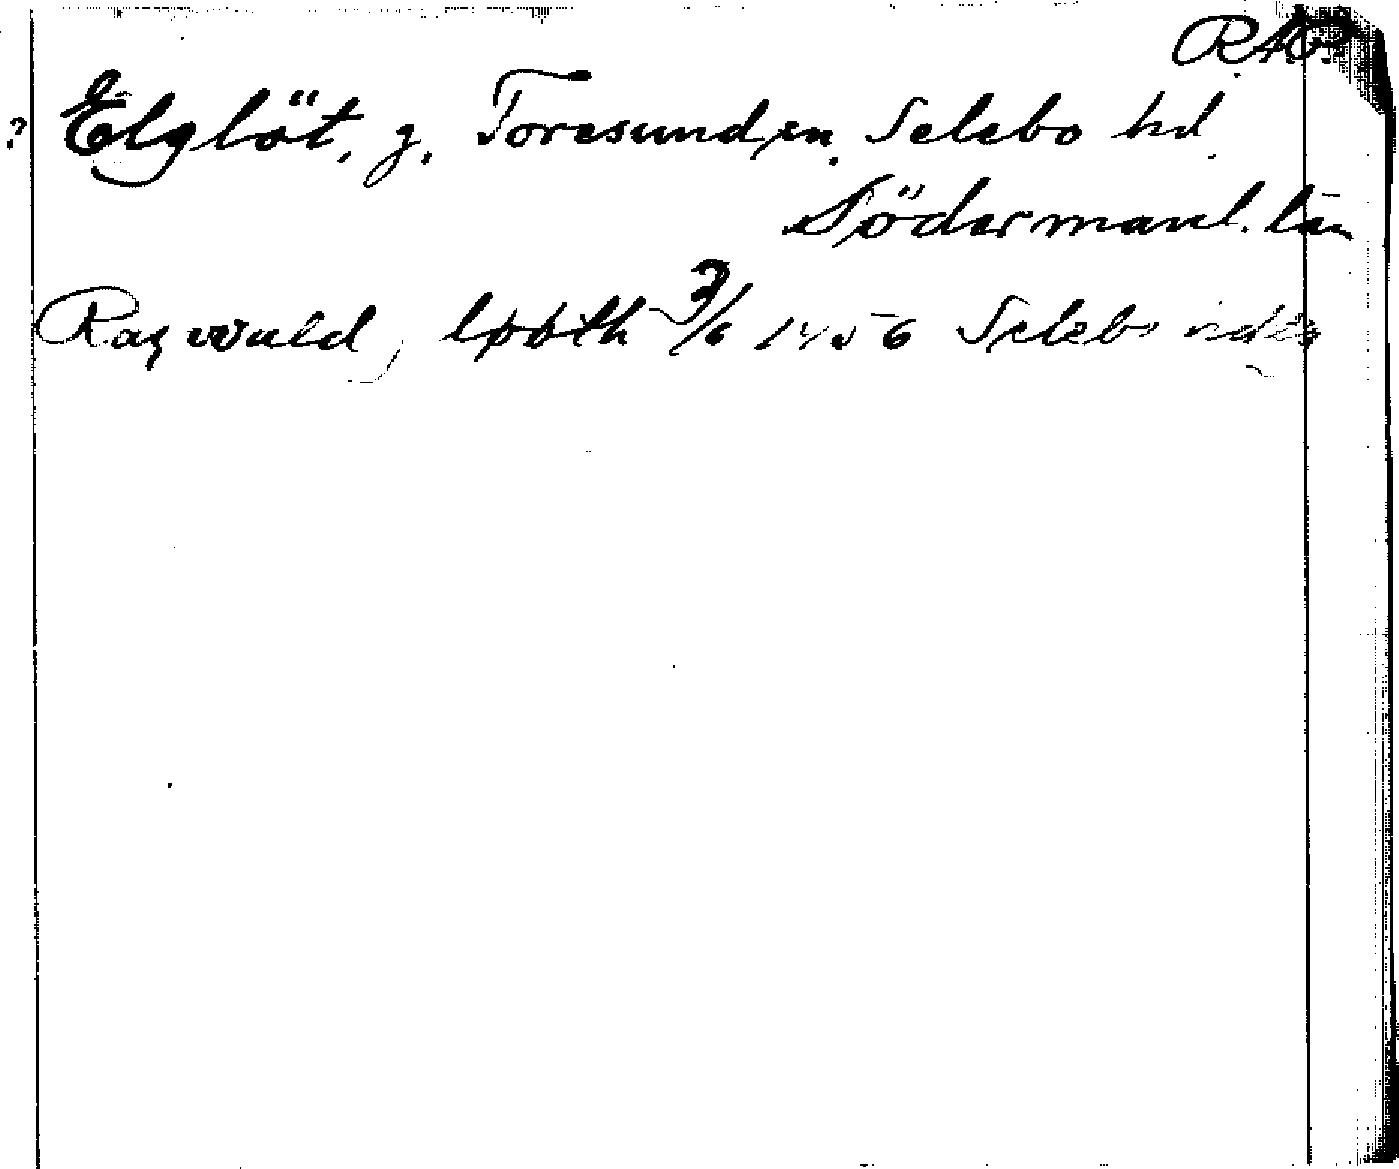 RAP.
? Elglöt, g. Toresund sn. Selebo hd.
Södermanl. län
Ragwald, lööth 3/6 1456 Selebo